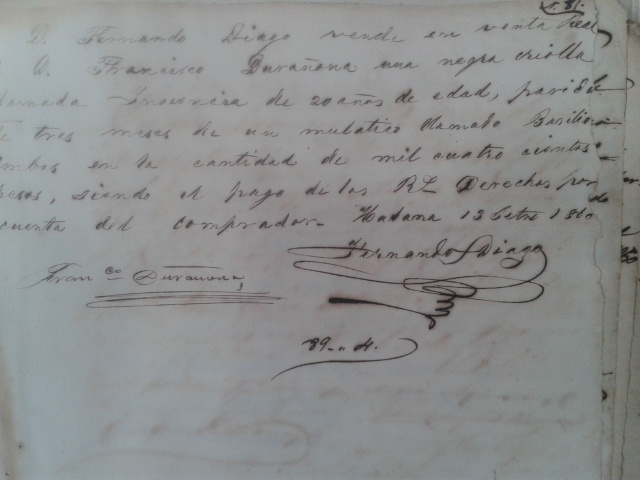 D. Fernando Diago vende en venta Real
D. Francisco Durañona una negra criolla
Inocencia de 20 años de edad, parida
de tres meses de un mulatico llamado Basilio
ambos en la cantidad de mil cuatro cientos
pesos, siendo el pago de los Rs. Derechos por
cuenta del comprador. Habana 13
Fernando Diago
Fran.co Durañona,